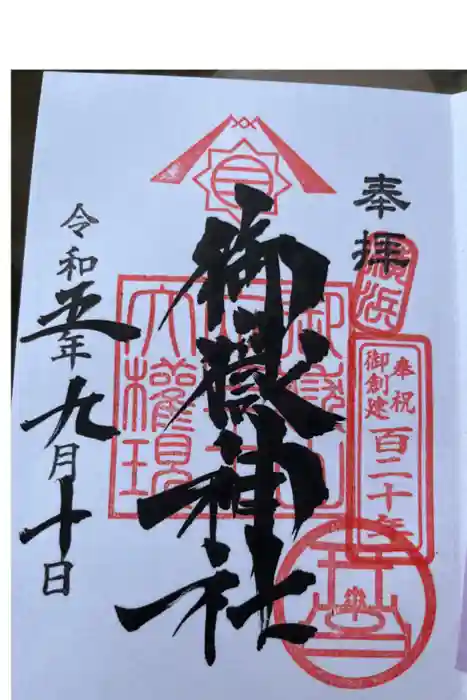 奉拝
横浜
奉祝
御創建
百二十年
御嶽神社
大権現
令和五年九月十日